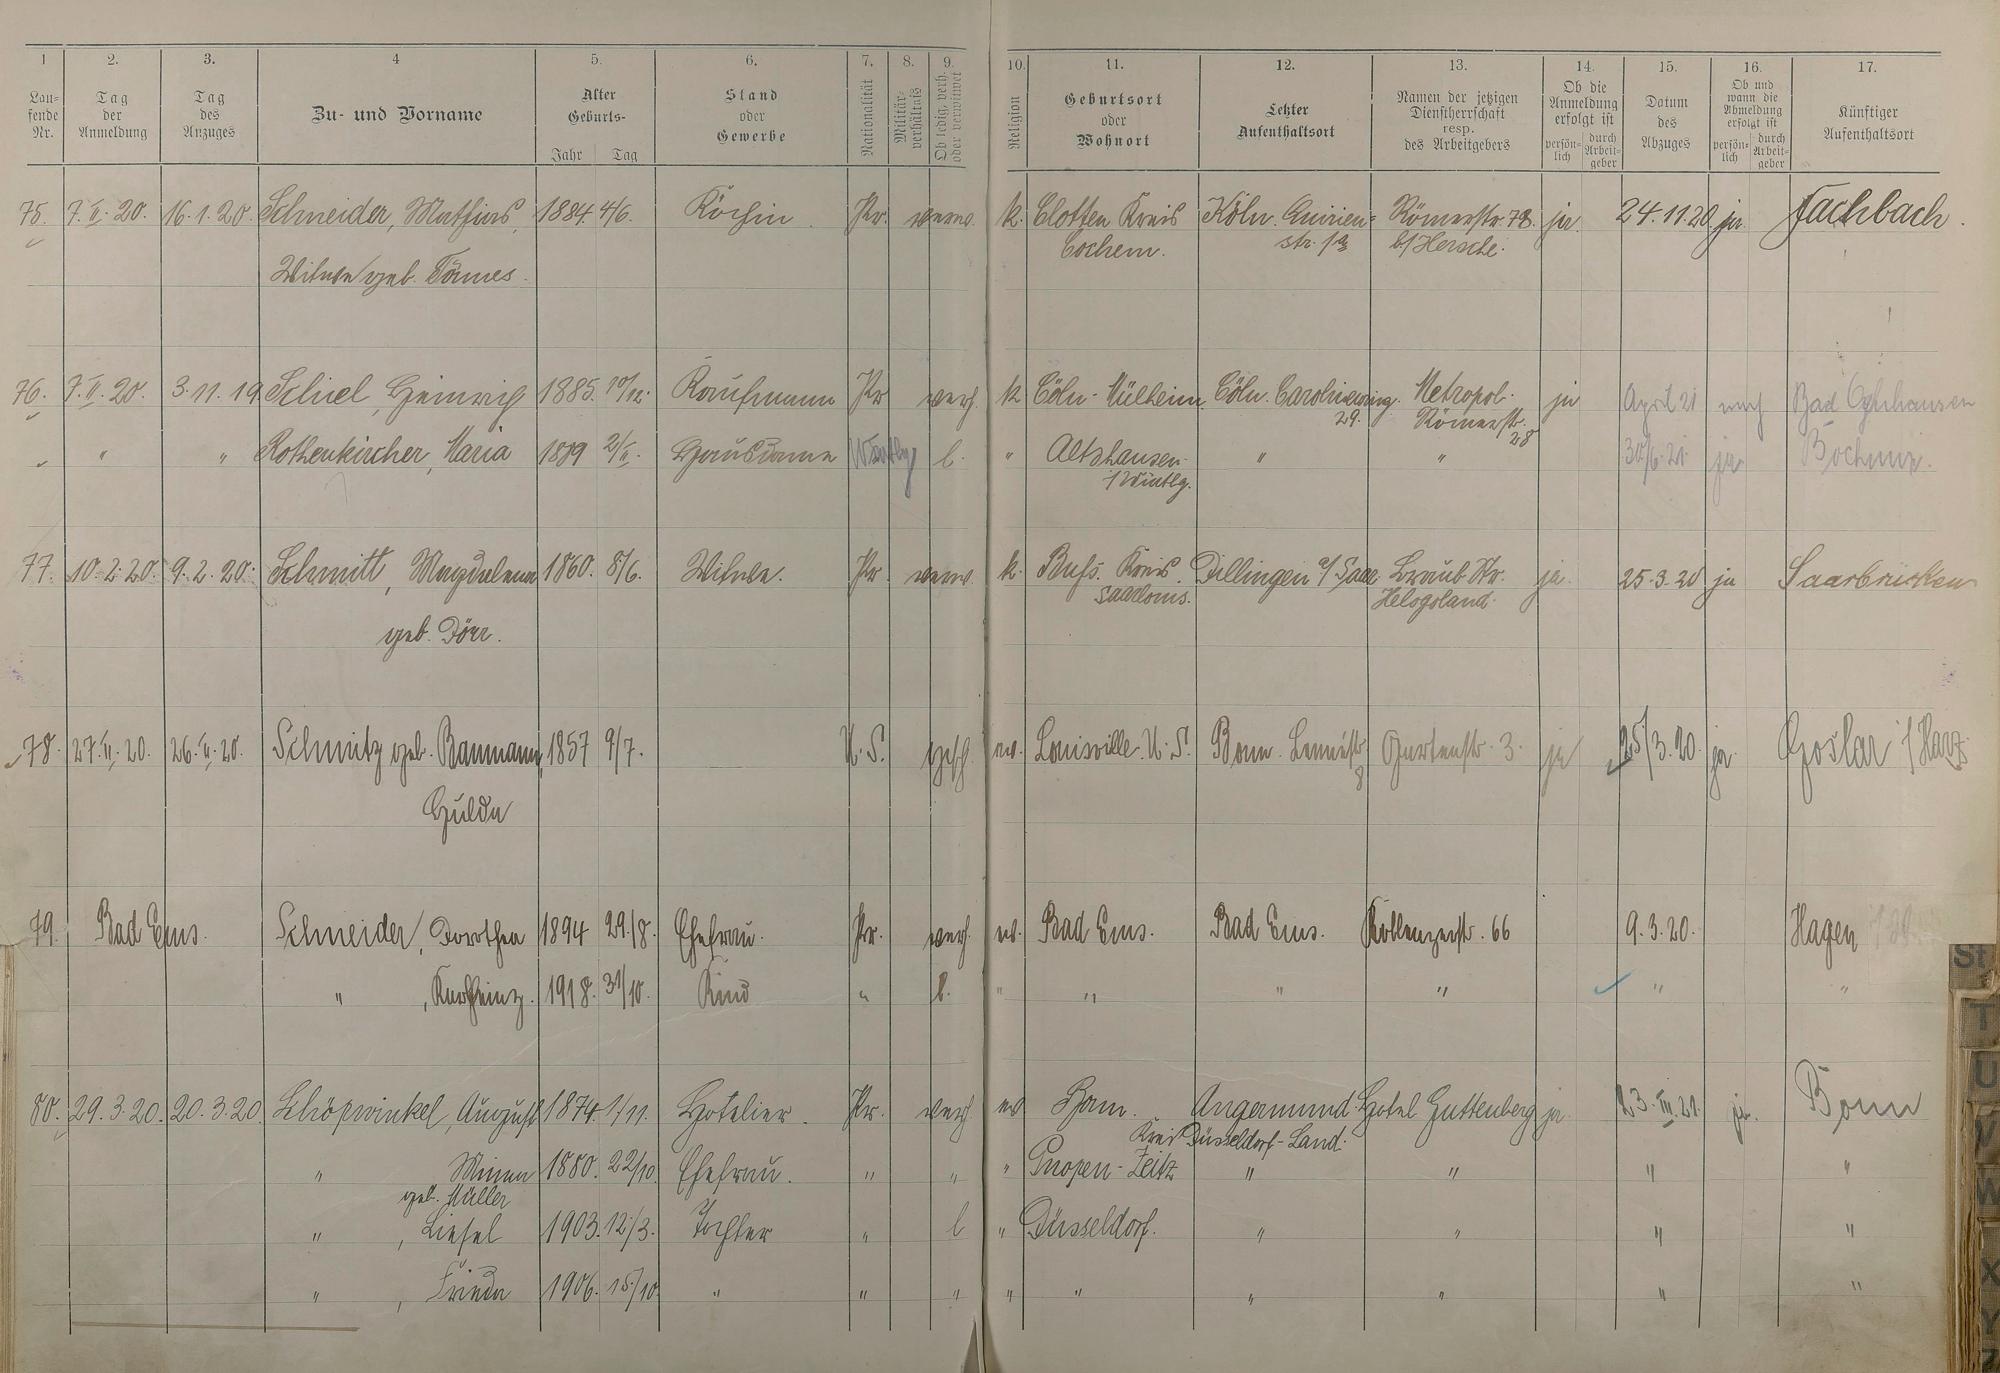 1 2. 3. 4 5. 6. 7. 8. 9. 10. 11. 12. 13. 14. 15. 16. 17.
Lau=
fende
Nr.
Tag
der
Anmeldung
Tag
des
Anzuges
Zu- und Vorname
Alter
Geburts-
Jahr Tag
Stand
oder
Gewerbe
Nationalität
Militär-
verhältnis
Ob ledig, verh.
oder verwitwet
Religion
Geburtsort
oder
Wohnort
Letzter
Aufenthaltsort
Namen der jetzigen
Dienstherrschaft
resp.
des Arbeitgebers
Ob die
Anmeldung
erfolgt ist
persön-
lich
durch
Arbeit-
geber
Datum
des
Abzuges
Ob und
wann die
Abmeldung
erfolgt ist
persön-
lich
durch
Arbeit-
geber
Künftiger
Aufenthaltsort
75. 7.II.20. 16.1.20. Schneider, 1884 4/6. Köchin. Pr. verw. k. Clotten Kreis Köln. Römerstr. 78. ja. 24.11.20 ja Fachbach.
Cochem. str.
Witwe geb. Tönnes.
76. 7.II.20. 3.11.19. Schiel, Heinrich 1885. 10/12. Kaufmann Pr verh. k Cöln-Mülheim. Cöln. Carolingerring. Metropol. ja April 21 Bad Oynhausen
29. Römerstr.
28
" " Rothenkircher, Maria 1889 2/II. Hausdame l. " Altshausen " " 30/6.21. ja
77. 10.2.20. 9.2.20. Schmitt, Magdalena 1860. 8/6. Witwe. Pr. verw. k. Kreis Dillingen a/Saar ja. 25.3.20 ja Saarbrücken
Saarlouis. Helogoland.
geb. Dörr.
78. 27.II.20. 26.II.20. Schmitz geb. Baumann, 1857 9/7. U.S. gesch. ev. Louisville. U.S. Bonn. Lennéstr. Gartenstr. 3. ja 25/3.20 ja. Goslar i/Harz
8
Hulda
79. Bad Ems. Schneider, Dorothea 1894 29./8. Ehefrau. Pr. verh. ev. Bad Ems. Bad Ems. 66 9.3.20. Hagen
" , Karlheinz. 1918. 31/10. Kind " l. " " " " " "
80. 29.3.20. 20.3.20. Schöpwinkel, August 1874. 1/11. Hotelier. Pr. verh. ev Angermund Hotel Guttenberg ja. 23.III.21. ja. Bonn
Kreis Düsseldorf-Land.
" Minna 1880. 22/10. Ehefrau. " " " Zeitz " " " "
geb. Müller
" , Liesel 1903. 12./3. Tochter " l " Düsseldorf. " " " "
" , Frieda 1906. 15./10. " " " " " " " " "
St
T
U
V
W
X
Y
Z